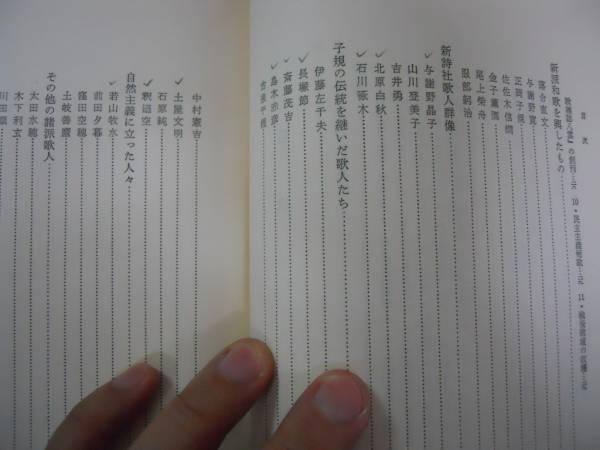 目次
の創刊
10・民主主義短歌
11・戦後派の
新派和歌を興したもの
落合直文
与謝野寛
正岡子規
佐佐木信綱
金子薫園
尾上柴舟
服部躬治
新詩社歌人群像
✓与謝野晶子
山川登美子
吉井勇
✓北原白秋
✓石川啄木
子規の伝統を継いだ歌人たち
伊藤左千夫
✓長塚節
✓斎藤茂吉
✓島木赤彦
古泉千樫
中村憲吉
✓土屋文明
石原純
✓釈迢空
自然主義に立った人々
✓若山牧水
前田夕暮
窪田空穂
土岐善麿
その他の諸派歌人
太田水穂
木下利玄
川田順